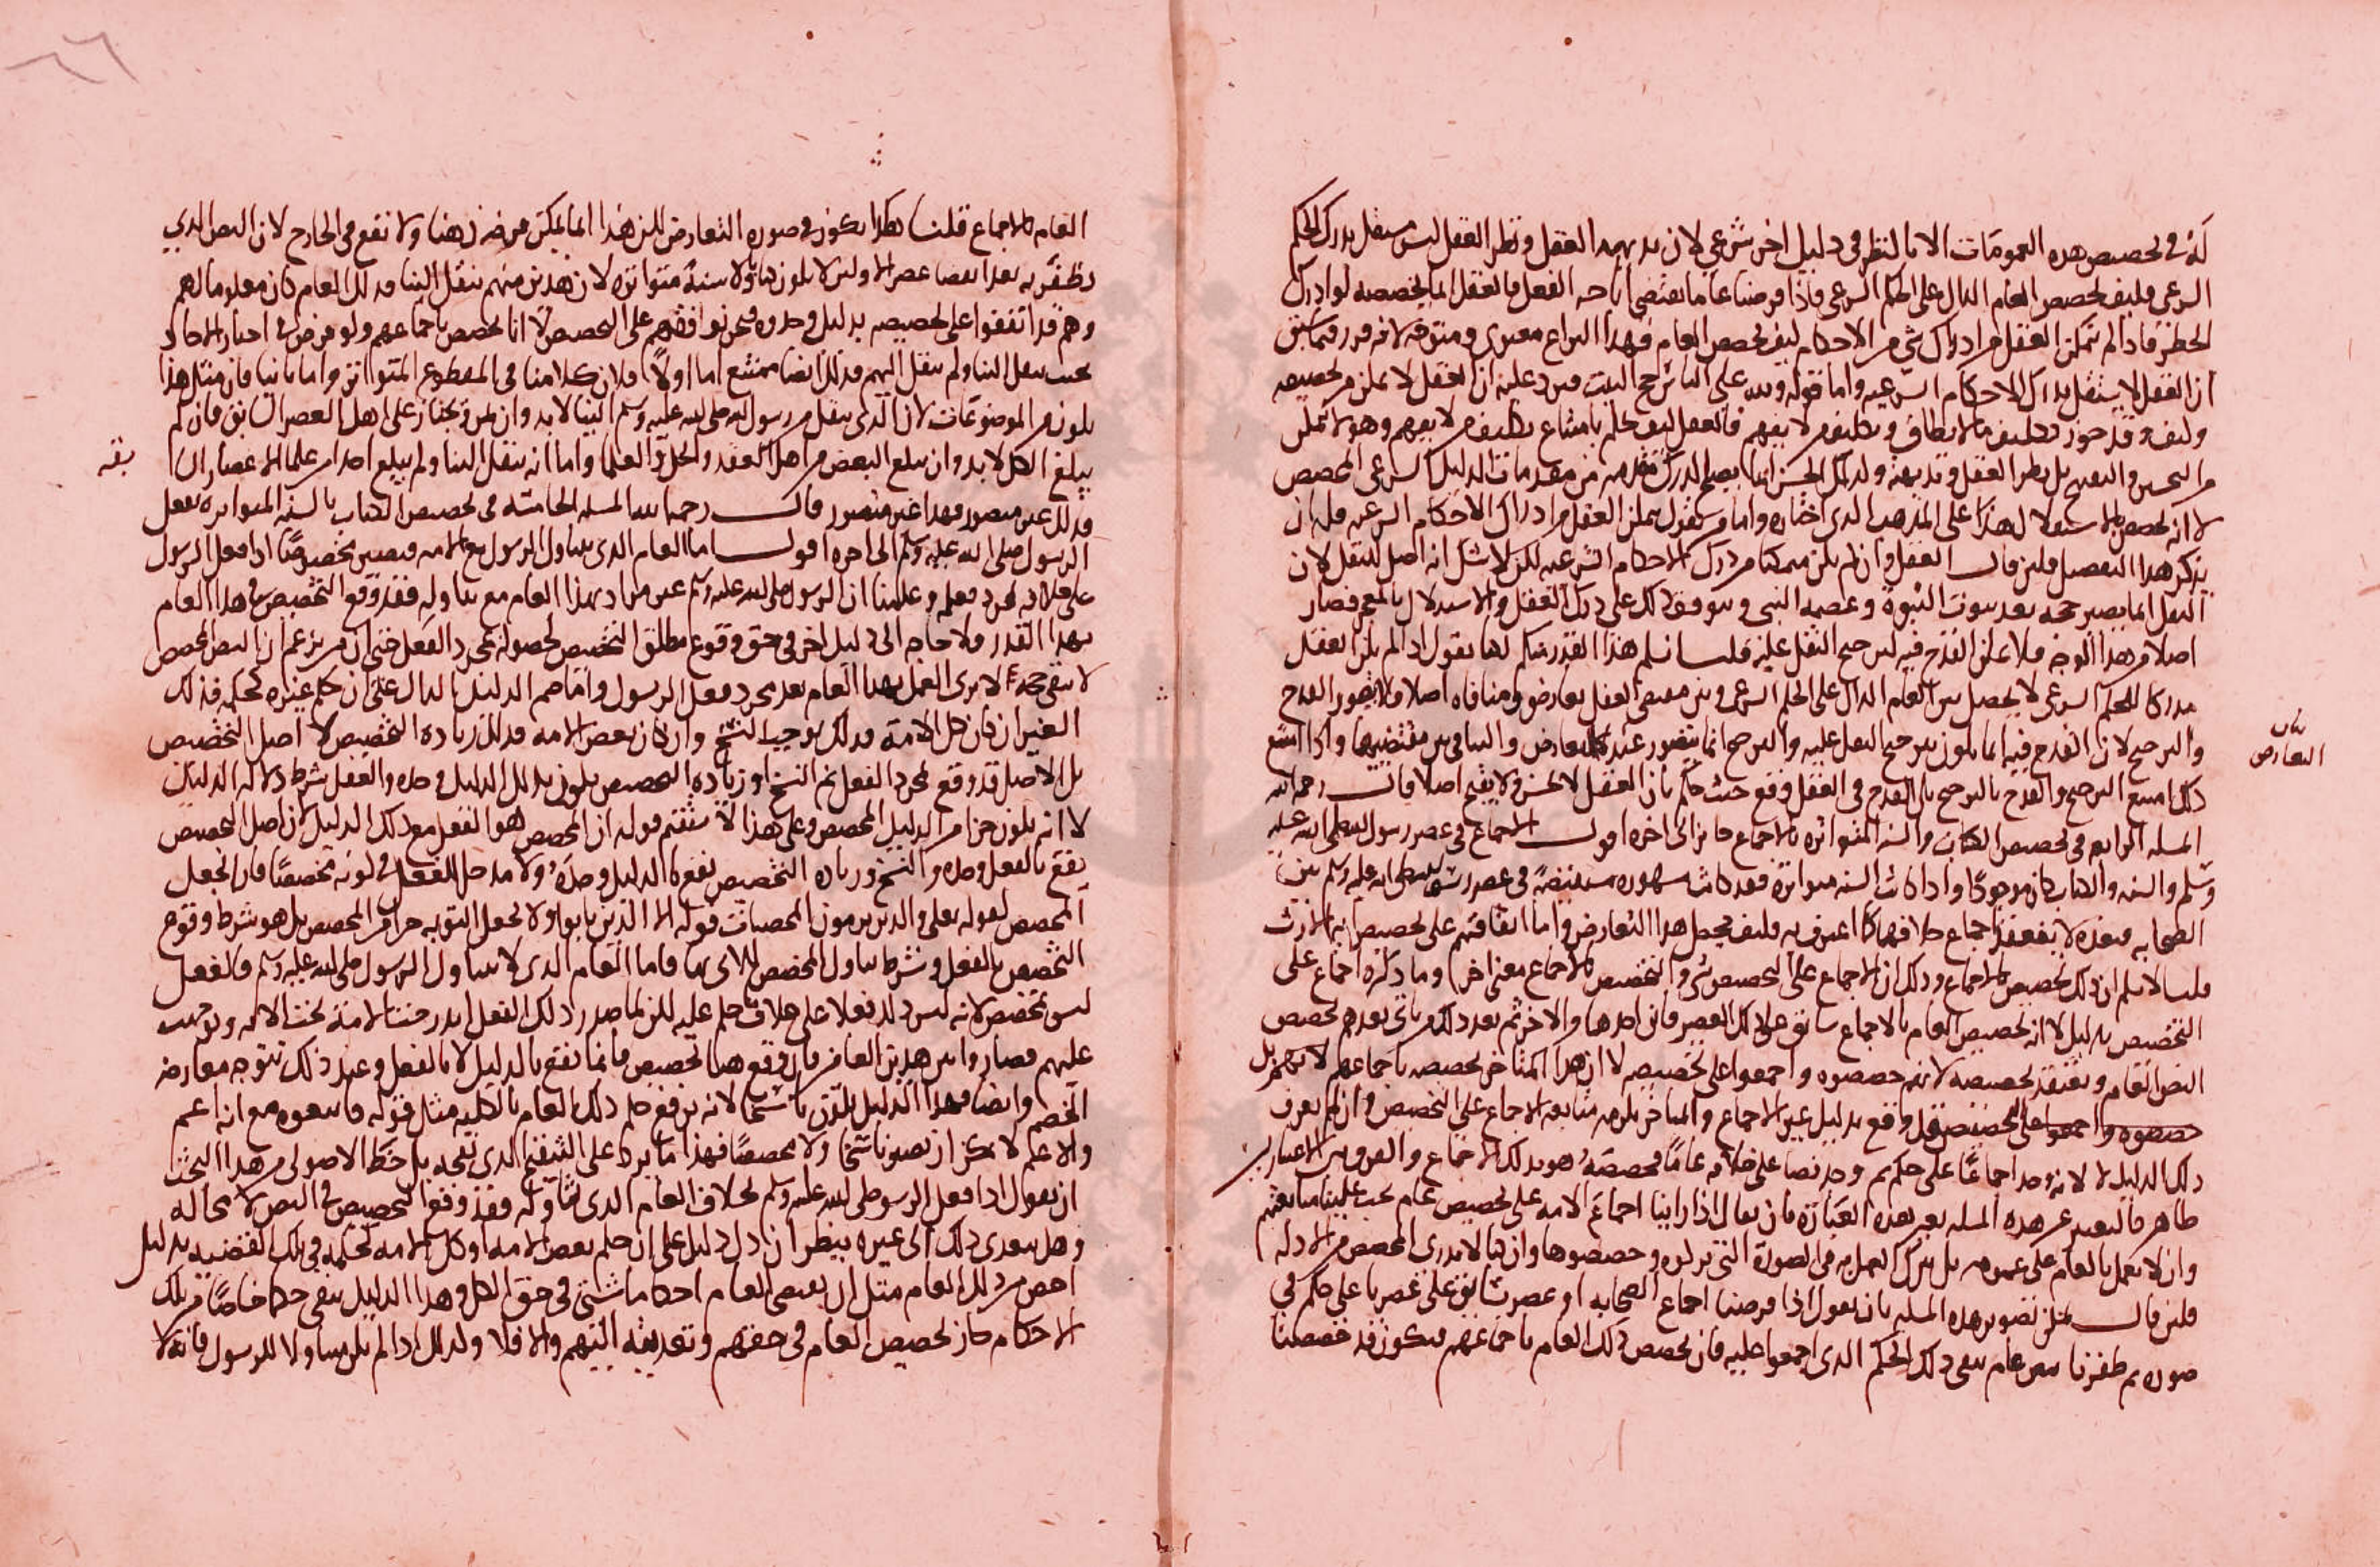 له في تخصيص هذه العمومات الا بالنظر في دليل اخر شرعي لان بديهة العقل ونظر العقل ليس مستقل بدرك الحكم
الشرعي فكيف يخصص العام الدال على الحكم الشرعي فاذا فرضنا عاما يقتضي اباحه الفعل فالعقل انما يخصصه لو ادرك
الحظر فاذا لم يتمكن العقل من ادراك شي من الاحكام كيف يخصص العام فهذا النزاع معنوي ومتوجه لانه قرر فيما سبق
ان العقل لا يستقل بدرك الاحكام الشرعيه واما قوله ولله على الناس حج البيت فيرد عليه ان العقل لا يمكن من تخصيصه
وكيف وقد جوز تكليف ما لا يطاق وتكليف من لا يفهم فالعقل كيف حكم بامتناع تكليف من لا يفهم وهو لا يتمكن
من التحسين والتقبيح بل نظر العقل وبديهته وكذلك الحس انما يصلح لدرك مقدمه من مقدمات الدليل الشرعي المخصص
لا انه يخصص بالاستقلال هذا على المذهب الذي اختاره واما من يقول يمكن العقل من ادراك الاحكام الشرعيه فله ان
يذكر هذا التفصيل فلئن قال العقل وان لم يكن متمكنا من درك الاحكام الشرعيه لكن لا شك انه اصل للنقل لان
النقل انما يصير حجه بعد ثبوت النبوة وعصمه النبي ويتوقف ذلك على درك العقل والاستدلال بالمعجز فصار
اصلا من هذا الوجه فلا يمكن القدح فيه لترجيح النقل عليه قلنا نسلم هذا القدر منكم لكنا نقول اذا لم يكن العقل
مدركا للحكم الشرعي لا يحصل بين العام الدال على الحكم الشرعي وبين مقتضى العقل تعارض ومنافاه اصلا فلا يتصور القدح
والترجيح لان القدح فيه انما يكون بترجيح النقل عليه والترجيح انما يتصور عند التعارض والتنافي بين مقتضييهما واذا امتنع
ذلك امتنع الترجيح والقدح بالترجيح بل القدح في العقل وقع حيث حكم بان العقل لا يحسن ولا يقبح اصلا قال رحمه الله
المسله الرابعه في تخصيص الكتاب والسنه المتواتره بالاجماع جائز الى اخره اقول الاجماع في عصر رسول الله صلى الله عليه
وسلم والسنه والكتاب كان موجودا واذا كانت السنه متواترة فقد كانت مشهوره مستفيضة في عصر رسول الله صلى الله عليه وسلم بين
الصحابه فعنده لا ينعقد اجماع خلافهما كما اعترف به فكيف يحصل هذا التعارض واما اتفاقهم على تخصيص ايه الارث
قلنا لا نسلم ان ذلك تخصيص بالاجماع وذلك ان الاجماع على التخصيص شي والتخصيص بالاجماع معنى اخر وما ذكره اجماع على
التخصيص بدليل لا انه تخصيص العام بالاجماع سابق على ذلك العصر فان احدها والاخر ثم بعد ذلك من ياتي بعدهم تخصيص
النص العام ويعتقد تخصيصه لانهم خصصوه واجمعوا على تخصيصه لا ان هذا المتاخر يخصصه باجماعهم لانهم بل
خصصوه واجمعوا على التخصيص بل واقع بدليل غير الاجماع والمتاخر يلزمه متابعه الاجماع على التخصيص وان لم يعرف
ذلك الدليل لا لانه وجد اجماعا على حكم ثم وجد نصا على خلافه عاما فخصصه هو بذلك الاجماع والفرق بين الاعتبارين
ظاهر فالتعبير عن هذه المسله بغير هذه العبارة فان يقال اذا راينا اجماع الامه على تخصيص عام يجب علينا متابعتهم
وان لا نعمل بالعام على عمومه بل نترك العمل به في الصورة التي تركوه وخصصوها وان كنا لا ندري المخصص من الادله
فلئن قال يمكن تصوير هذه المسله بان نقول اذا فرضنا اجماع الصحابه او عصر سابق على عصرنا على حكم في
صوره ثم ظفرنا بنص عام ينفي ذلك الحكم الذي اجمعوا عليه فان يخصص ذلك العام باجماعهم فيكون قد خصصنا
بيان
التعارض
العام بالاجماع قلنا هكذا يكون في صوره التعارض لكن هذا انما يمكن فرضه ذهنا ولا تقع في الخارج لان النص الذي
نظفر به بعد انقضا عصر الاولين لا يكون كتابا ولا سنة متواترة لان هذين منهم ينقل الينا فذلك العام كان معلوما لهم
وهم قد اتفقوا على تخصيصه بدليل وجدوه فنحن نوافقهم على التخصيص لا انا نخصص باجماعهم ولو فرض في اخبار الاحاد
بحيث ينقل الينا ولم ينقل اليهم فذلك ايضا ممتنع اما اولا فلان كلامنا في المقطوع المتواتر واما ثانيا فان مثل هذا
يكون من الموضوعات لان الذي ينقل من رسول الله صلى الله عليه وسلم الينا لا بد وان يمر ويجتاز على اهل العصر السابق فان لم
يبلغ الكل لا بد وان يبلغ البعض من اهل العقد والحل والعلما واما انه ينقل الينا ولم يبلغ احدا من علما الاعصار السا
بقه
فذلك غير متصور فهذا غير متصور قال رحمه الله المسله الخامسه في تخصيص الكتاب بالسنه المتواتره بفعل
الرسول صلى الله عليه وسلم الى اخره اقول اما العام الذي يتناول الرسول مع الامه فيصير مخصوصا اذا فعل الرسول
على خلافه بمجرد فعله وعلمنا ان الرسول صلى الله عليه وسلم غير مراد بهذا العام مع تناوله فقد وقع التخصيص في هذا العام
بهذا القدر فلا حاجه الى دليل اخر في حق وقوع مطلق التخصيص لحصوله بمجرد الفعل حتى ان من يزعم ان النص المخصص
لا يبقى حجة لا يرى العمل بهذا العام بعد مجرد فعل الرسول واما ضم الدليل الدال على ان حكم غيره كحكمه فذلك
الغير ان كان كل الامة فذلك يوجب النسخ وان كان بعض الامه فذلك زياده التخصيص لا اصل التخصيص
بل الاصل قد وقع بمجرد الفعل ثم النسخ او زياده التخصيص يكون بذلك الدليل وحده والفعل شرط دلالة الدليل
لا انه يكون جزا من الدليل المخصص وعلى هذا لا يستقيم قوله ان المخصص هو الفعل مع ذلك الدليل لان اصل التخصيص
يقع بالفعل وحده والنسخ وزياده التخصيص يقع بالدليل وحده ولا مدخل للفعل في كونه مخصصا فان الجعل
المخصص لقوله تعالى والذين يرمون المحصنات قوله الا الذين تابوا ولا يجعل التوبه جزا من المخصص بل هو شرط وقوع
التخصيص بالفعل وشرط تناول المخصص للذي تاب فاما العام الذي لا يتناول الرسول صلى الله عليه وسلم فالفعل
ليس بمخصص لانه ليس ذلك فعلا على خلاف حكم عليه لكن لما صدر ذلك الفعل اندرجت الامة تحت الامه وتوجهت
عليهم فصار دائرا بين هذين العامين فان وقع هنا تخصيص فانما يقع بالدليل لا بالفعل وعند ذلك يتوجه معارضه
الخصم وايضا فهذا الدليل يكون ناسخا لانه يرفع حكم ذلك العام بالكليه مثل قوله فاتبعوه مع انه اعم
والاعم لا يمكن ان يصير ناسخا ولا مخصصا فهذا ما يرد على التنقيح الذي نقحه بل حظ الاصولي من هذا البحث
ان يقول اذا فعل الرسول صلى الله عليه وسلم بخلاف العام الذي تناوله فقد وقع التخصيص في النص لا محاله
وهل يتعدى ذلك الى غيره ينظر ان دل دليل على ان حكم بعض الامه او كل الامه كحكمه في تلك القضيه بدليل
اخص من ذلك العام مثل ان يقتضي العام احكاما شتى في حق الكل وهذا الدليل ينفي حكما خاصا من تلك
الاحكام جاز تخصيص العام في حقهم وتعديته اليهم والا فلا وكذلك اذا لم يكن متناولا للرسول فانه لا